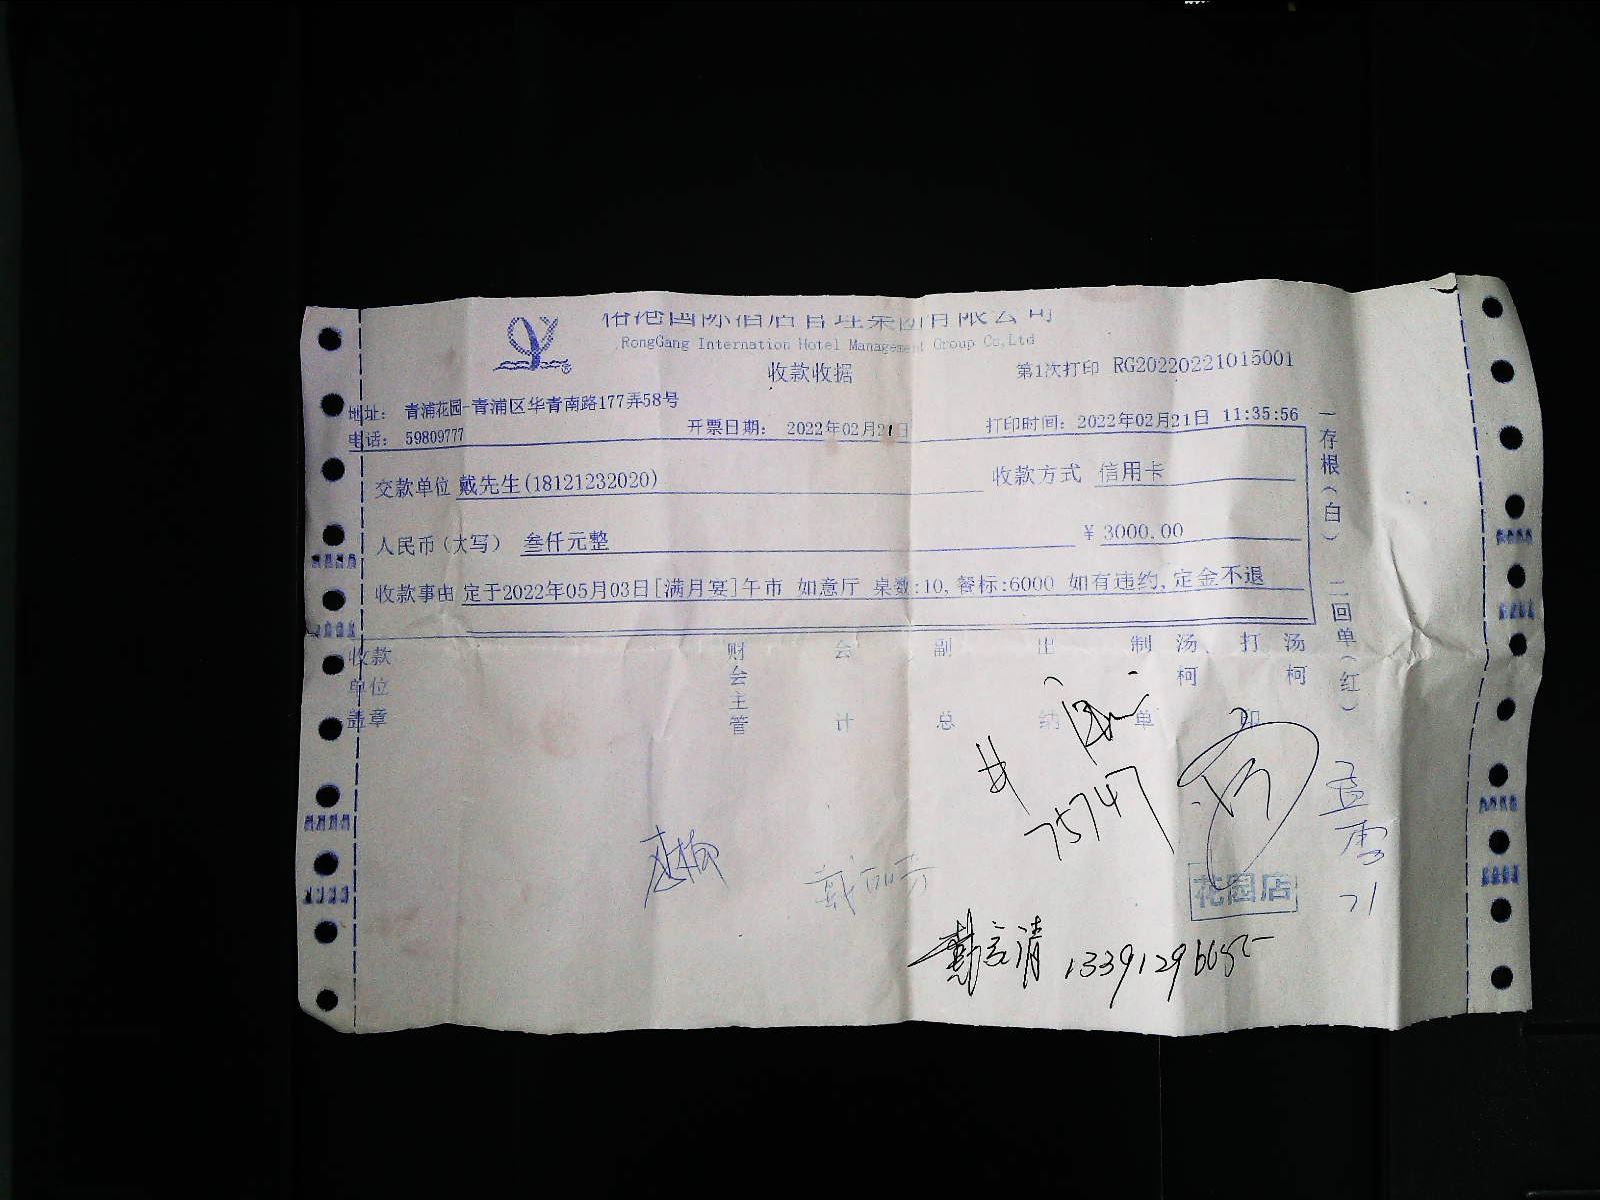 国际酒店管理集团有限公司
RongGang Internation Hotel Management Group Co,Ltd
收款收据
第1次打印 RG20220221015001
地址: 青浦花园-青浦区华青南路177弄58号
电话: 59809777
开票日期: 2022年02月21日
打印时间: 2022年02月21日 11:35:56
交款单位 戴先生(18121232020)
收款方式 信用卡
人民币(大写) 叁仟元整
¥ 3000.00
收款事由 定于2022年05月03日[满月宴]午市 如意厅 桌数:10,餐标:6000 如有违约,定金不退
收款单位盖章
财会主管
会计
副总
出纳
制单
汤柯
打印
汤柯
一存根(白) 二回单(红)
75747
花园店